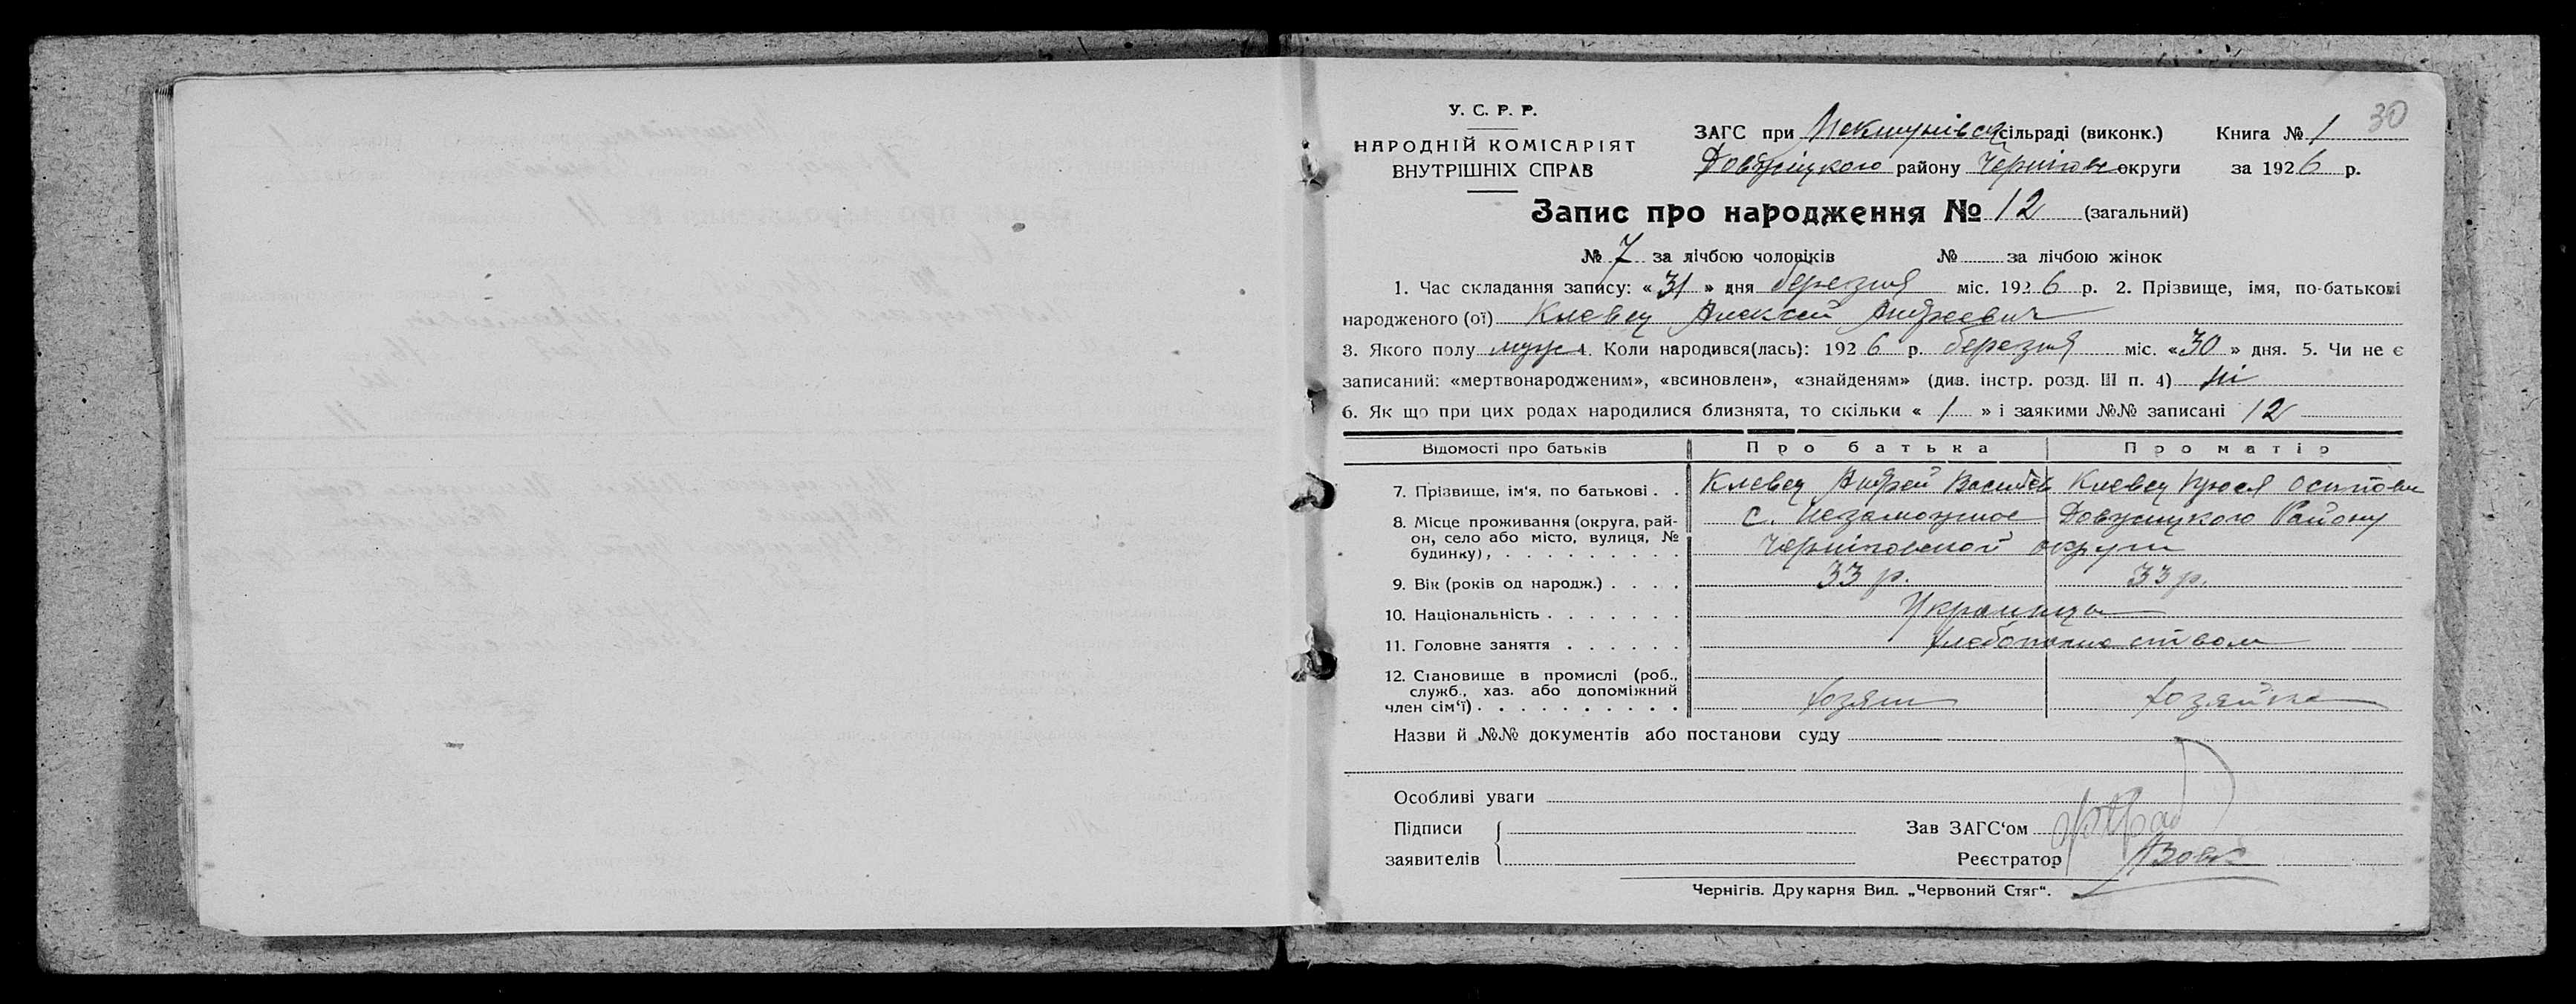 30
У. С. Р. Р.
НАРОДНІЙ КОМІСАРІЯТ
ВНУТРІШНІХ СПРАВ
ЗАГС при сільраді (виконк.) Книга № 1
Довжицького району Чернігов округи за 1926 р.
Запис про народження № 12 (загальний)
№ 7 за лічбою чоловіків № за лічбою жінок
1. Час складання запису: «31» дня березня міс. 1926 р. 2. Прізвище, імя, по-батькові
народженого (ої) Клевец Алексей Андреевич
3. Якого полу муж 4. Коли народився(лась): 1926 р. березня міс. «30» дня. 5. Чи не є
записаний: «мертвонародженим», «всиновлен», «знайденям» (див. інстр. розд. III п. 4) ні
6. Як що при цих родах народилися близнята, то скільки « 1 » і заякими №№ записані 12
Відомості про батьків Про батька Про матір
7. Прізвище, ім'я, по батькові . . Клевец Андрей Васильев Клевец Осиповн
8. Місце проживання (округа, рай-
он, село або місто, вулиця, №
будинку), . . . . . . . . . .
с. Незаможное Довжицкого Району
Черниговской округи
9. Вік (років од народж.) . . . . 33 р. 33 р.
10. Національність . . . . . . . Украинца
11. Головне заняття . . . . . . хлебопашеством
12. Становище в промислі (роб.,
служб., хаз. або допоміжний
член сім'ї) . . . . . . . . . . хозяин хозяйка
Назви й №№ документів або постанови суду
Особливі уваги
Підписи
заявителів
Зав ЗАГС'ом
Реєстратор
Чернігів. Друкарня Вид. „Червоний Стяг“.